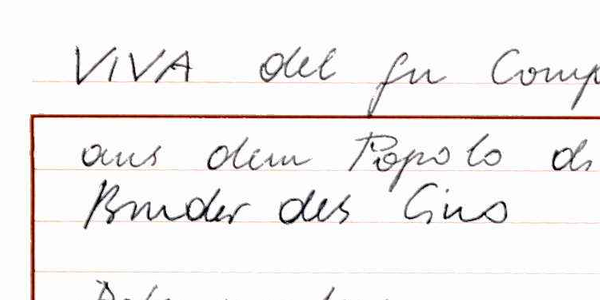 VIVA del fu Comp
aus dem Popolo di
Bruder des Gino